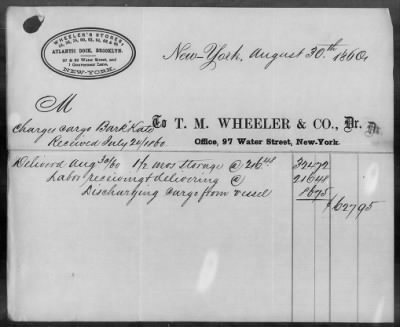 WHEELER'S STORES,
ATLANTIC DOCK, BROOKLYN.
97 & 99 Water Street, and
1 Gouverneur Lane,
NEW-YORK.
New-York, August 30th 1860
M
Charges Cargo Bark "Kate
To T. M. WHEELER & CO., Dr.
Received July 20/1860
Office, 97 Water Street, New-York.
Delivered Aug 30/60 1 1/2 mos Storage @ 216 48 32472
Labor receiving & delivering @ 21648
Discharging Cargo from vessel 8675
$62795